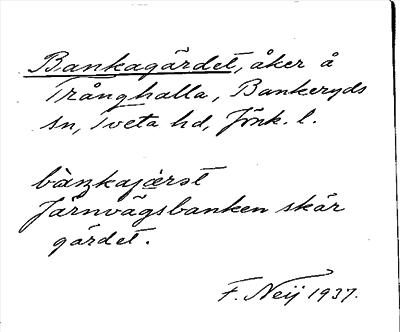 Bankagärdet, åker å
Trånghalla, Bankeryds
sn, Tveta hd, Jönk. l.
bànkajærst
Järnvägsbanken skär
gärdet.
F. Neij 1937.